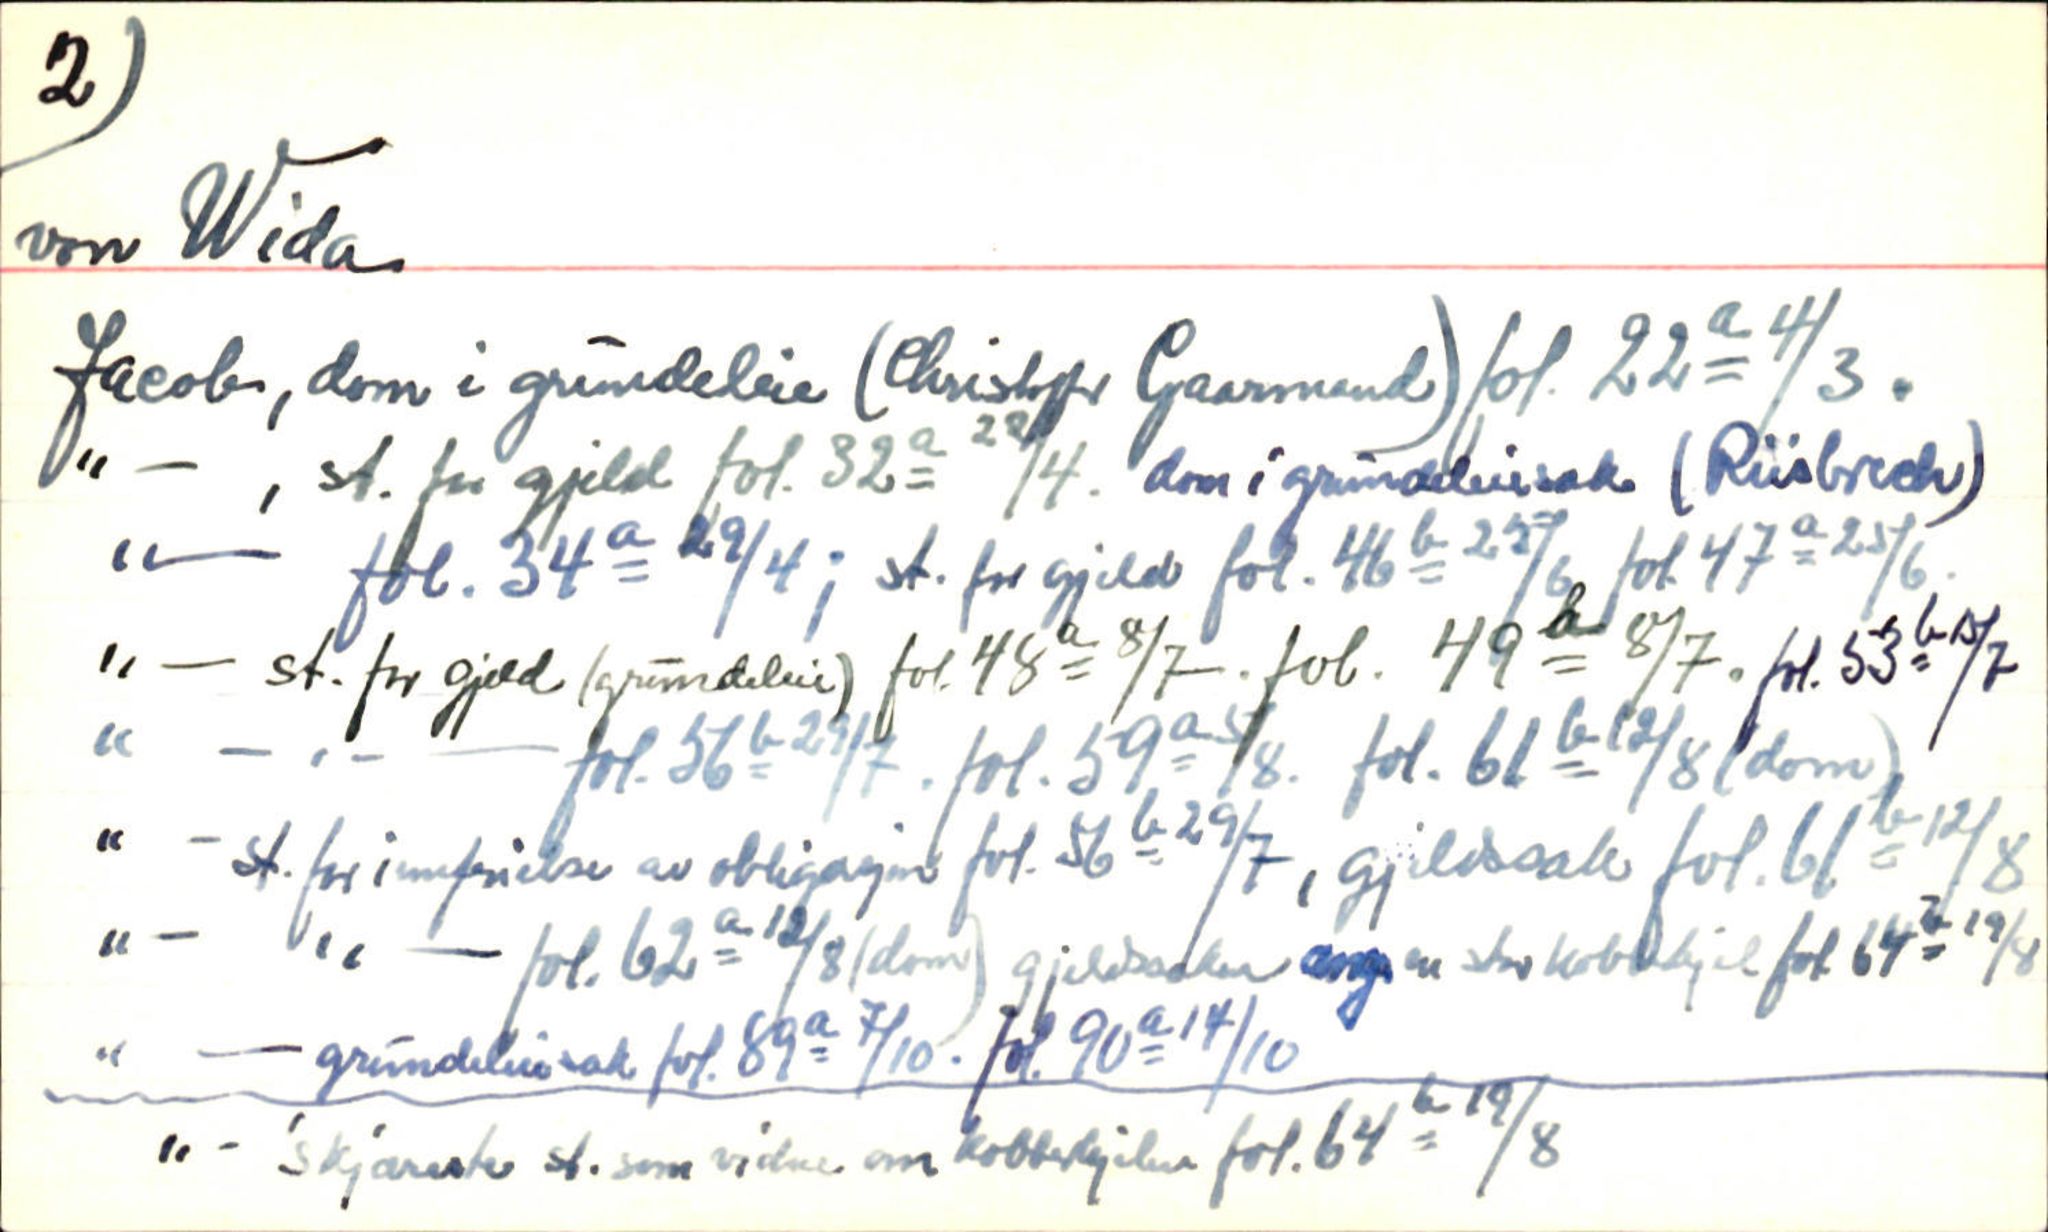 2)
von Wida
Jacob, dom i grundeleie (Christoffer Gaarmand) fol. 22a 4/3.
" — , st. for gjeld fol. 32a 22/4. dom i grundeleiesak (Riisbrech)
" — fol. 34a 29/4; st. for gjeld fol. 46b 25/6 fol 47a 25/6.
" — st. for gjeld (grundeleie) fol. 48a 8/7. fol. 49a 8/7. fol. 53b 15/7
" — " — fol. 56b 29/7. fol. 59a 5/8. fol. 61b 12/8 (dom)
" — st. for innfrielse av obligasjon fol. 56b 29/7, gjeldssak fol. 61b 12/8
" — " — fol. 62a 12/8 (dom) gjeldssaken ang. en stor kobberkjel fol. 64b 19/8
" — grundeleiesak fol. 89a 7/10. fol. 90a 14/10
" — 's kjæreste st. som vidne om kobberkjelen fol. 64b 19/8